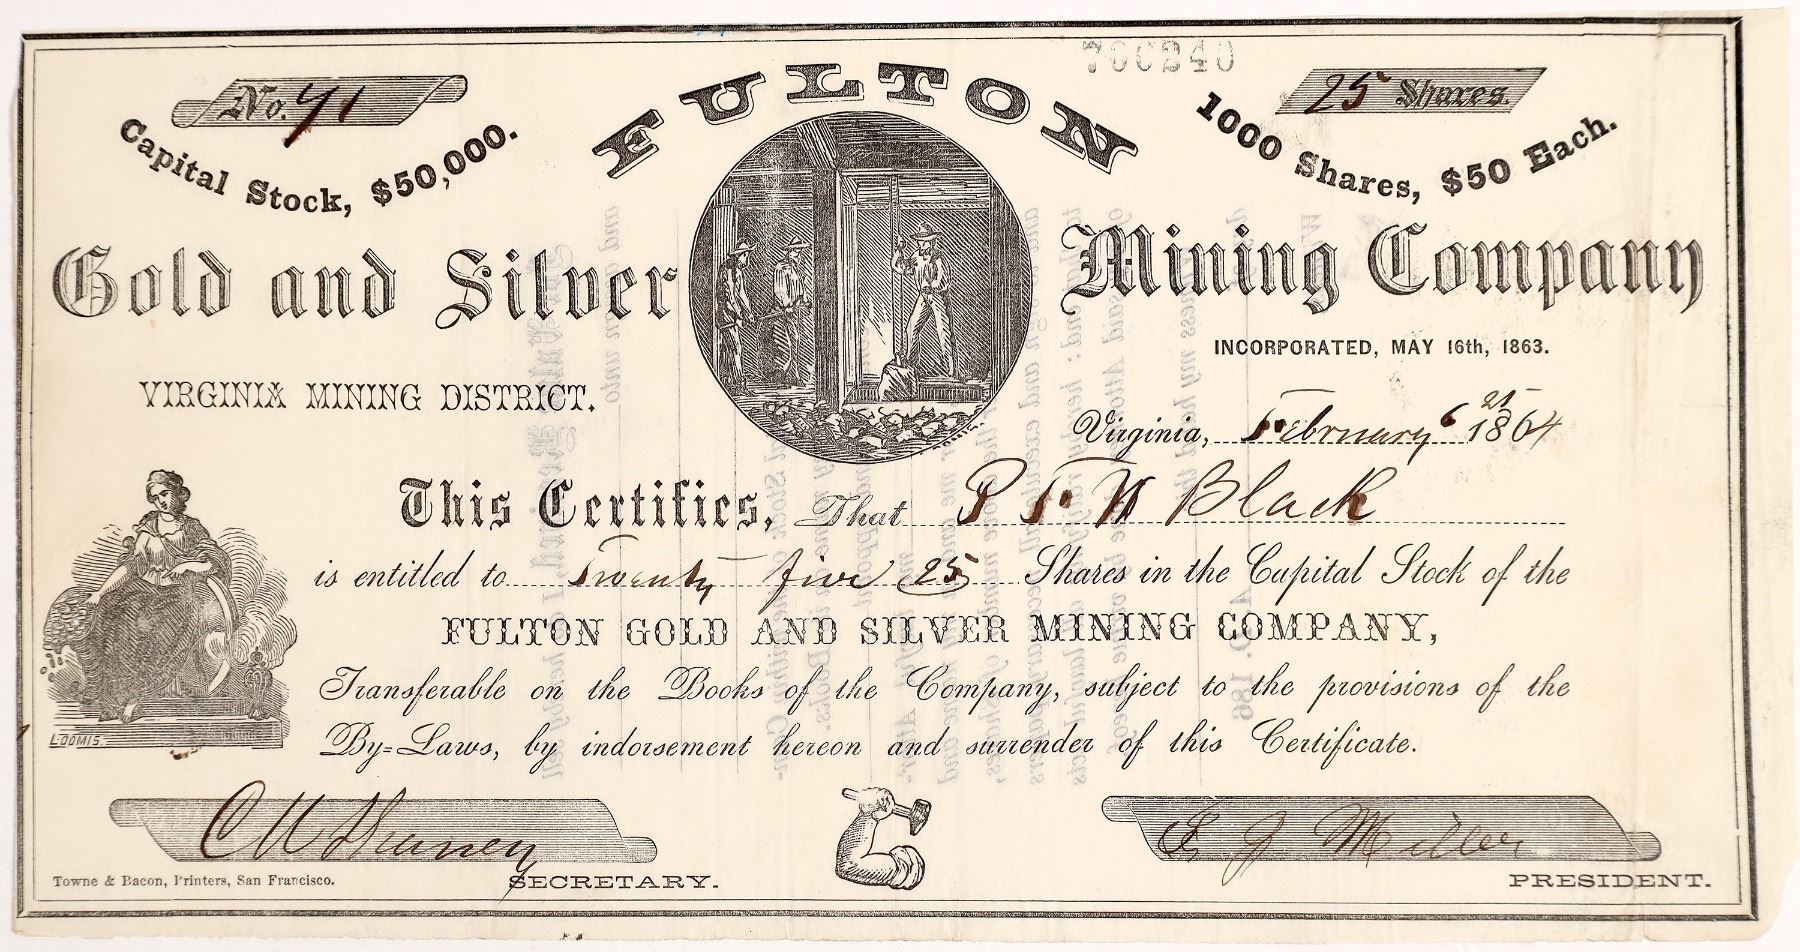 700240
No. 41
25 Shares.
Capital Stock, $50,000.
FULTON
1000 Shares, $50 Each.
Gold and Silver Mining Company
INCORPORATED, MAY 16th, 1863.
VIRGINIA MINING DISTRICT.
Virginia, February 6 25 1864
This Certifies, That P F W Black
is entitled to Twenty five 25 Shares in the Capital Stock of the
FULTON GOLD AND SILVER MINING COMPANY,
Transferable on the Books of the Company, subject to the provisions of the
By=Laws, by indorsement hereon and surrender of this Certificate.
LOOMIS.
C W
J Miller
Towne & Bacon, Printers, San Francisco.
SECRETARY.
PRESIDENT.